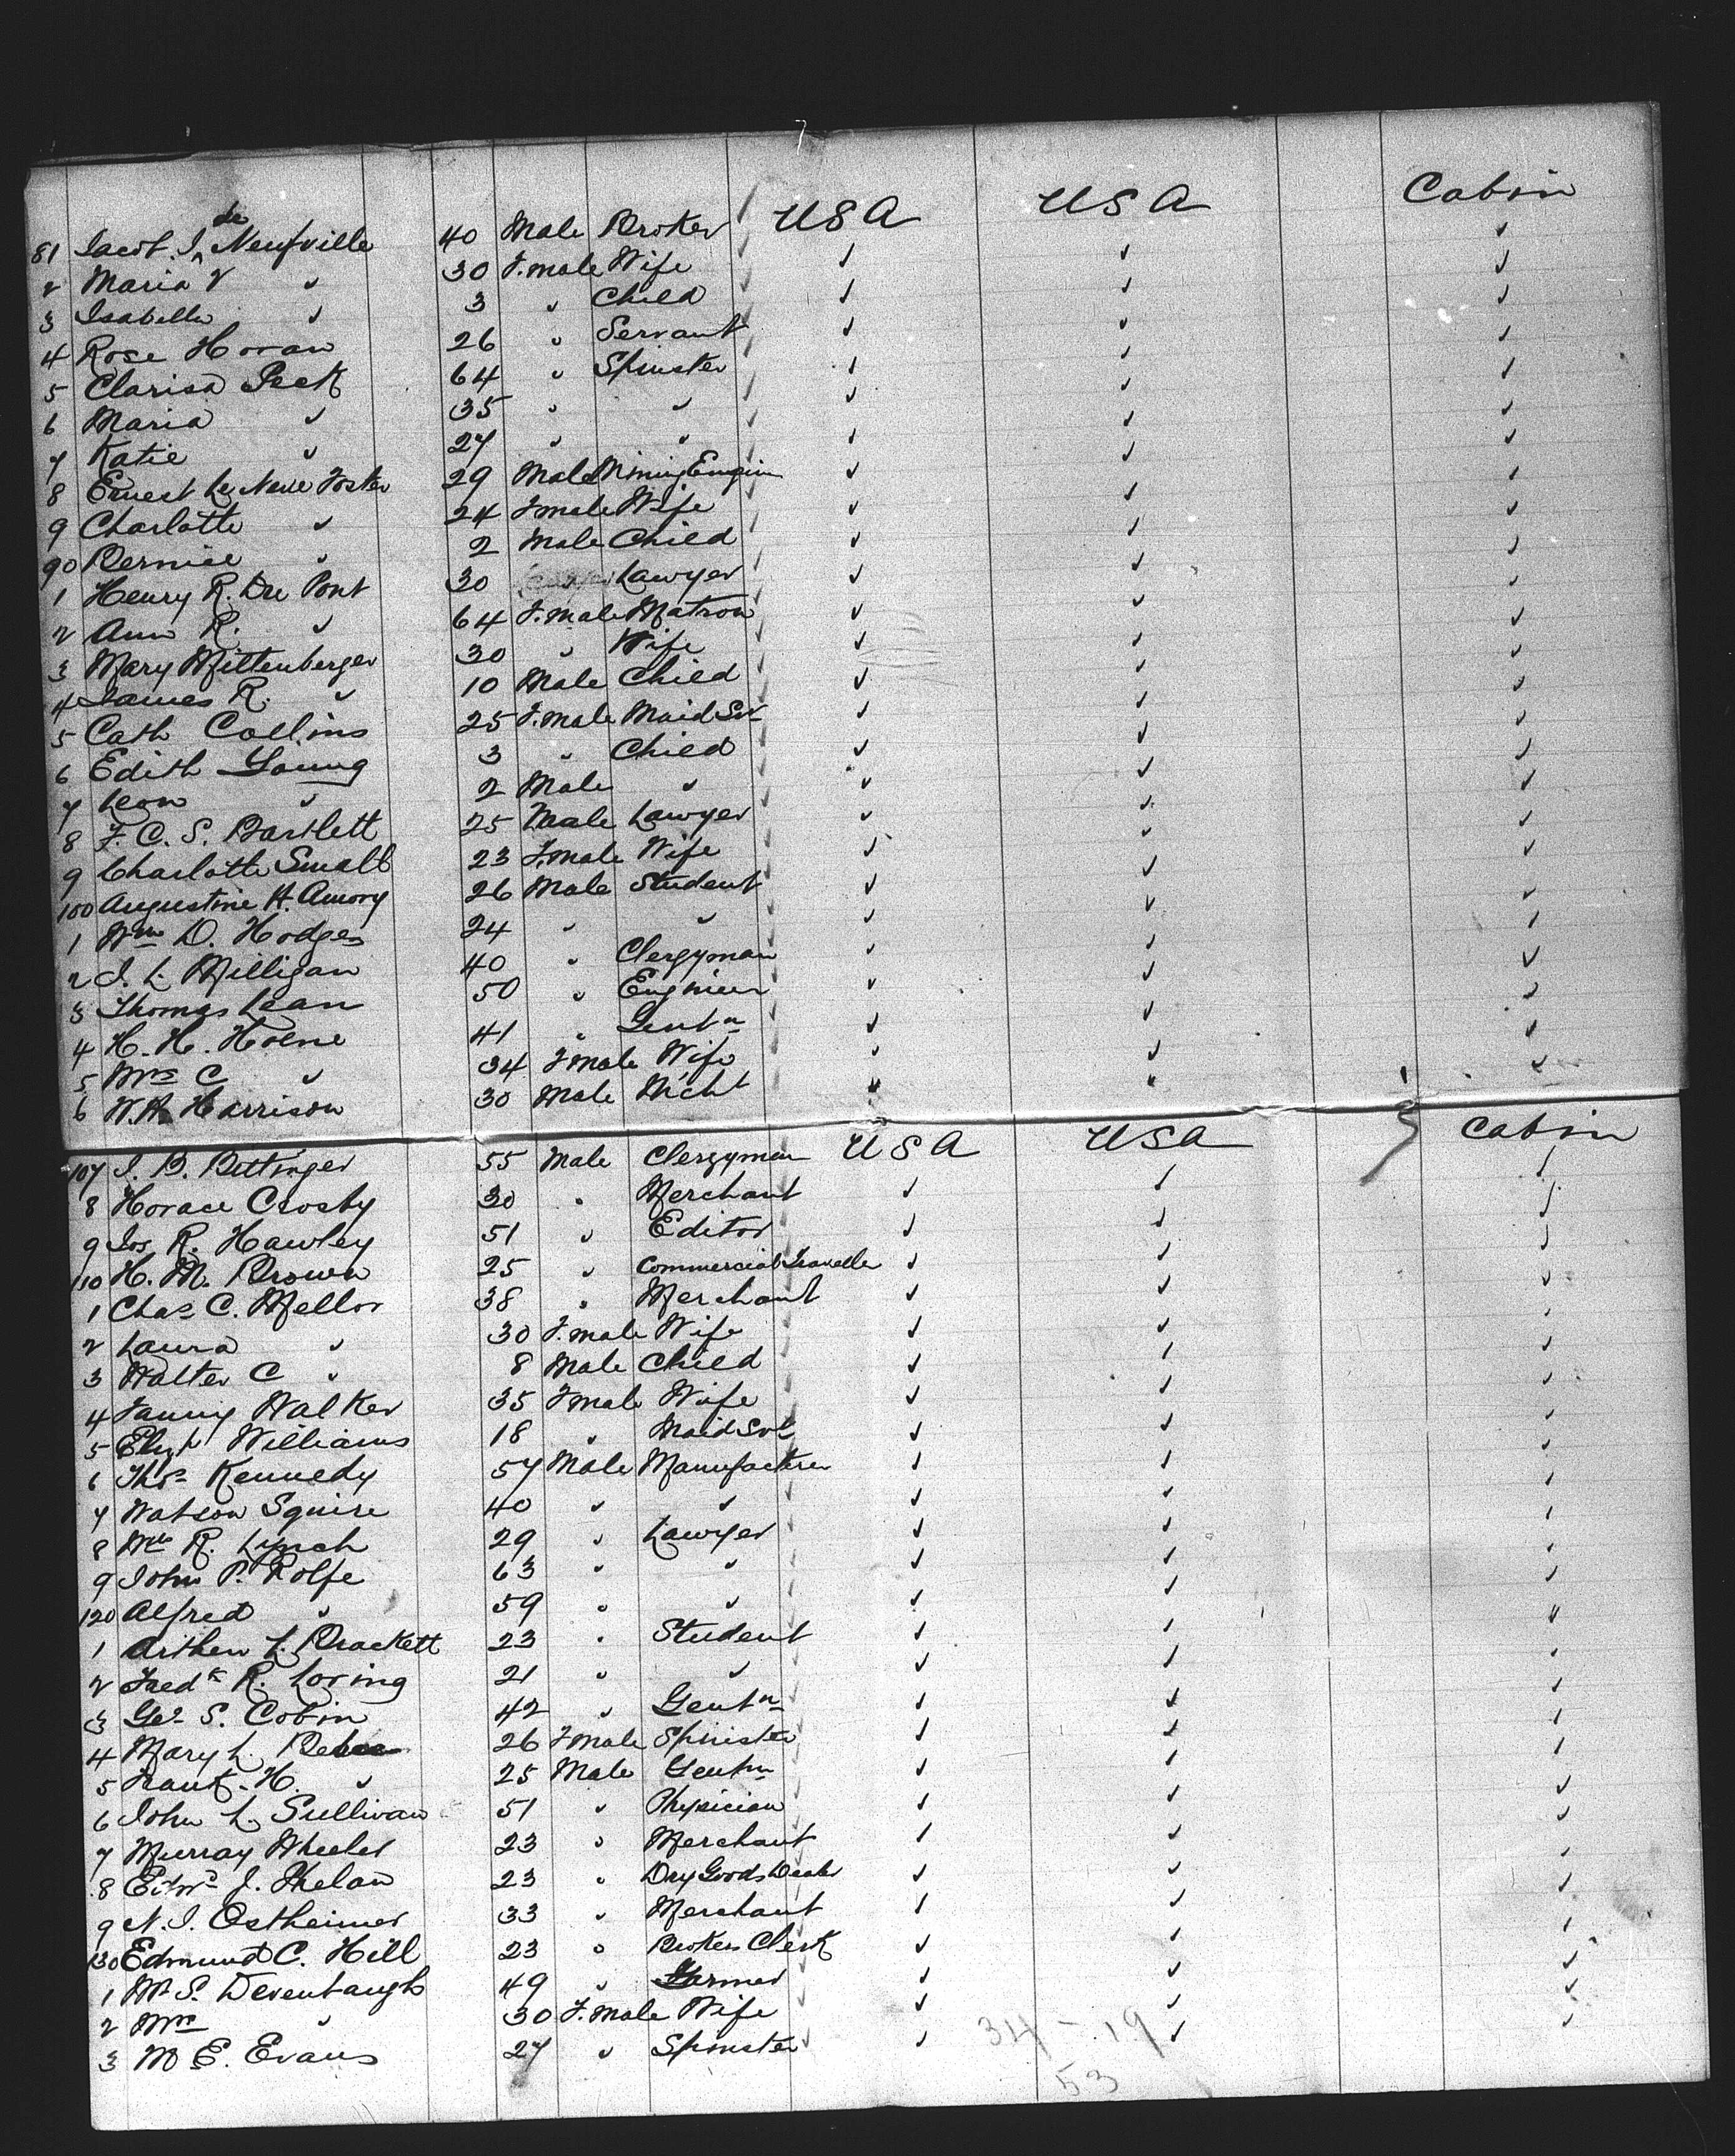 USA USA Cabin
81 Jacob. J. de Neufville 40 Male Broker
2 Maria V " 30 F.male Wife
3 Isabella " 3 " Child
4 Rose Horan 26 " Servant
5 Clarisa Peck 64 " Spinster
6 Maria " 35 " "
7 Katie " 27 " "
8 Ernest Le Neve Foster 29 Male Mining Engin
9 Charlotte " 24 Fmale Wife
90 Bernice " 2 Male Child
1 Henry R. Du Pont 30 Lawyer
2 Ann R. " 64 F.male Matron
3 Mary Miltenberger 30 " Wife
4 James R. " 10 Male Child
5 Cath Collins 25 F.male Maid Svt
6 Edith Young 3 " Child
7 Leon " 2 Male "
8 F. C. S. Bartlett 25 Male Lawyer
9 Charlotte Small 23 F.male Wife
100 Augustine H. Amory 26 Male Student
1 Wm D. Hodges 24 " "
2 J. L. Milligan 40 " Clergyman
3 Thomas Lean 50 " Engineer
4 H. H. Horne 41 " Gentn
5 Mrs C " 34 Fmale Wife
6 W.A. Harrison 30 Male Mcht
107 J. B. Bittinger 55 Male Clergyman USA USA Cabin
8 Horace Crosby 30 " Merchant
9 Jos R. Hawley 51 " Editor
110 H. M. Brown 25 " Commercial Traveller
1 Chas C. Mellor 38 " Merchant
2 Laura " 30 F.male Wife
3 Walter C " 8 Male Child
4 Fanny Walker 35 Fmale Wife
5 Elizh Williams 18 " Maid Svt
6 Thos Kennedy 57 Male Manufacturer
7 Watson Squire 40 " "
8 Wm R. Lynch 29 " Lawyer
9 John P. Rolfe 63 " "
120 Alfred " 59 " "
1 Arthur L. Brackett 23 " Student
2 Fredk R. Loring 21 " "
3 Geo S. Cobin 42 " Gentn
4 Mary L. 26 Fmale Spinster
5 Frank. H. " 25 Male Gentn
6 John L. Sullivan 51 " Physician
7 Murray Wheeler 23 " Merchant
8 Edwd J. Phelan 23 " Dry Goods Dealer
9 N. J. Ostheimer 33 " Merchant
130 Edmund C. Hill 23 " Brokers Clerk
1 M S. Devenbaugh 49 " Farmer
2 Mrs " 30 F.male Wife
3 M E. Evans 27 " Spinster
34 - 19
53